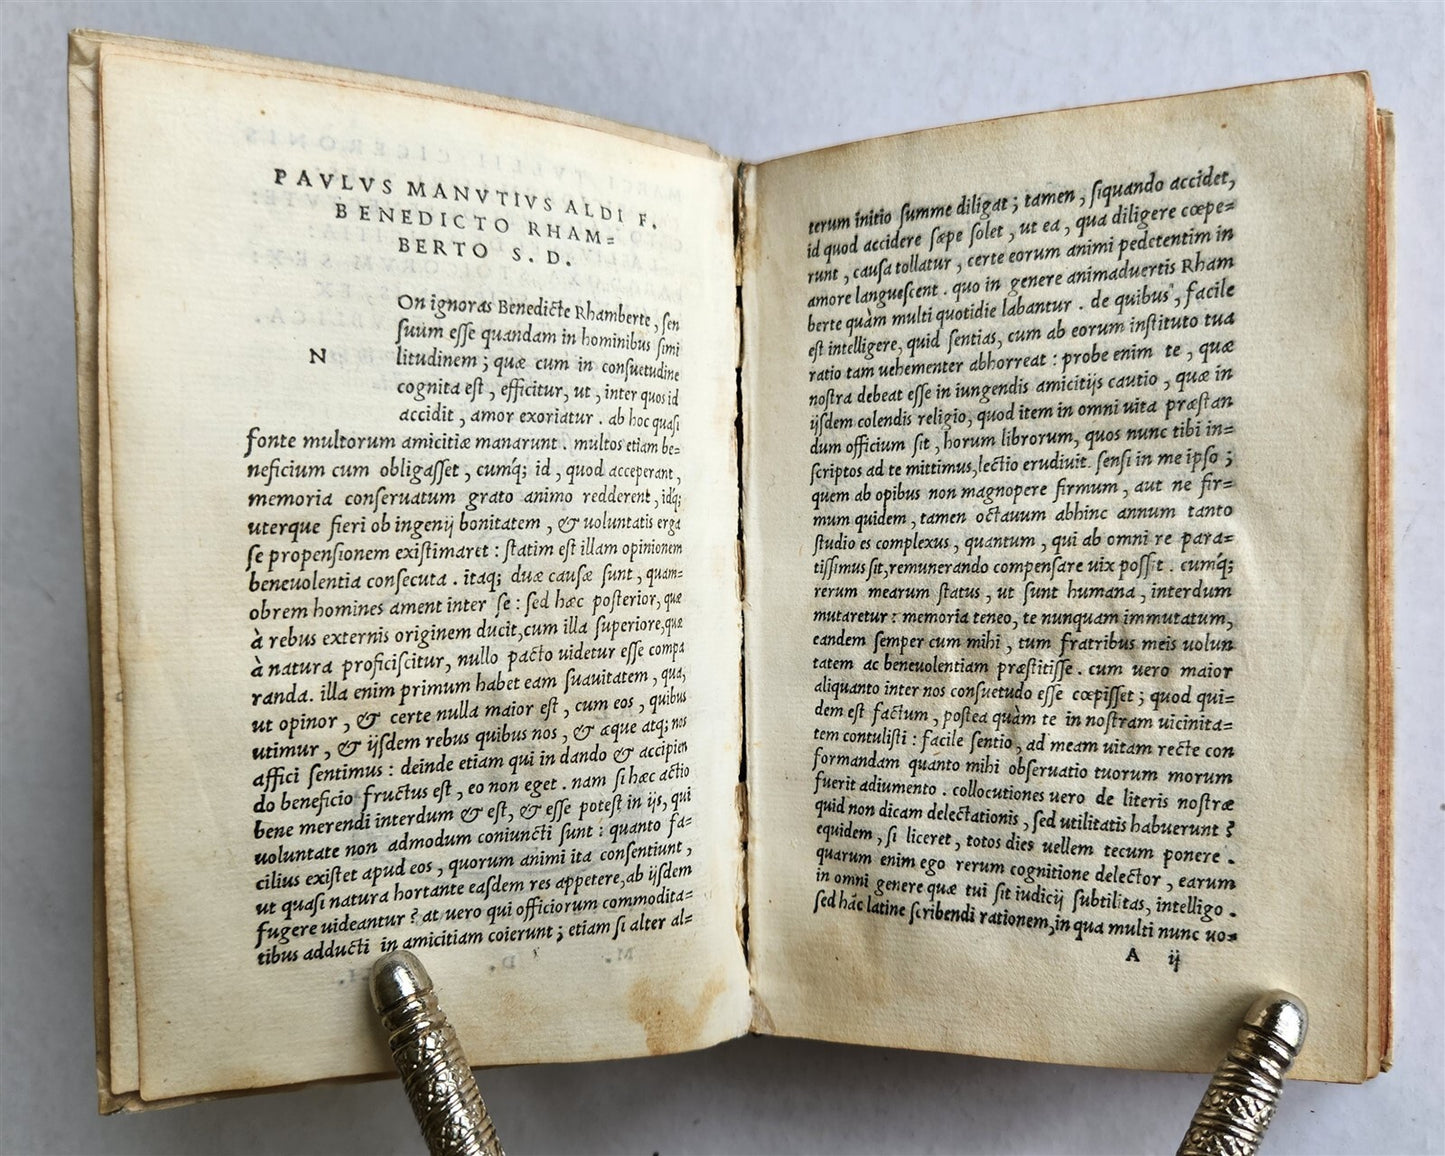 PAVLVS MANVTIVS ALDI F.
BENEDICTO RHAM=
BERTO S. D.
N
On ignoras Benedicte Rhamberte, sen
suum esse quandam in hominibus simi
litudinem; quæ cum in consuetudine
cognita est, efficitur, ut, inter quos id
accidit, amor exoriatur. ab hoc quasi
fonte multorum amicitiæ manarunt. multos etiam be=
neficium cum obligasset, cumq́; id, quod acceperant,
memoria conseruatum grato animo redderent, idq́;
uterque fieri ob ingenij bonitatem, & uoluntatis erga
se propensionem existimaret: statim est illam opinionem
beneuolentia consecuta. itaq; duæ causæ sunt, quam=
obrem homines ament inter se: sed hæc posterior, quæ
à rebus externis originem ducit, cum illa superiore, quæ
à natura proficiscitur, nullo pacto uidetur esse compa
randa. illa enim primum habet eam suauitatem, qua,
ut opinor, & certe nulla maior est, cum eos, quibus
utimur, & ijsdem rebus quibus nos, & æque atq; nos
affici sentimus: deinde etiam qui in dando & accipien
do beneficio fructus est, eo non eget. nam si hæc actio
bene merendi interdum & est, & esse potest in ijs, qui
uoluntate non admodum coniuncti sunt: quanto fa=
cilius existet apud eos, quorum animi ita consentiunt,
ut quasi natura hortante easdem res appetere, ab ijsdem
fugere uideantur? at uero qui officiorum commodita=
tibus adducti in amicitiam coierunt; etiam si alter al=
terum initio summe diligat; tamen, siquando accidet,
id quod accidere sæpe solet, ut ea, qua diligere cœpe=
runt, causa tollatur, certe eorum animi pedetentim in
amore languescent. quo in genere animaduertis Rham
berte quàm multi quotidie labantur. de quibus, facile
est intelligere, quid sentias, cum ab eorum instituto tua
ratio tam uehementer abhorreat: probe enim te, quæ
nostra debeat esse in iungendis amicitijs cautio, quæ in
ijsdem colendis religio, quod item in omni uita præstan
dum officium sit, horum librorum, quos nunc tibi in=
scriptos ad te mittimus, lectio erudiuit. sensi in me ipso;
quem ab opibus non magnopere firmum, aut ne fir=
mum quidem, tamen octauum abhinc annum tanto
studio es complexus, quantum, qui ab omni re para=
tissimus sit, remunerando compensare uix possit. cumq́;
rerum mearum status, ut sunt humana, interdum
mutaretur: memoria teneo, te nunquam immutatum,
eandem semper cum mihi, tum fratribus meis uolun
tatem ac beneuolentiam præstitisse. cum uero maior
aliquanto inter nos consuetudo esse cœpisset; quod qui=
dem est factum, postea quàm te in nostram uicinita=
tem contulisti: facile sentio, ad meam uitam recte con
formandam quanto mihi obseruatio tuorum morum
fuerit adiumento. collocutiones uero de literis nostræ
quid non dicam delectationis, sed utilitatis habuerunt?
equidem, si liceret, totos dies uellem tecum ponere.
quarum enim ego rerum cognitione delector, earum
in omni genere quæ tui sit iudicij subtilitas, intelligo.
sed hāc latine scribendi rationem, in qua multi nunc uo=
A ij